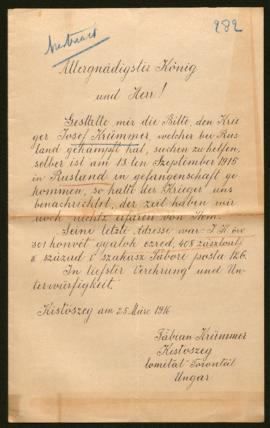 282
Allergnädigster König
und Herr!
Gestatte mir die Bitte, den Krie
ger Josef Krümmer, welcher bei Rus
land gekämpft hat, suchen zu helfen,
selber ist am 18 ten September 1915
in Rusland in gefangenschaft ge
kommen, so hatt der Krieger uns
benachrichtet, der zeid haben wir
noch nichtz erfaren von Ihm.
Seine letzte Adresse war K. K.
301 honvét gyalok ezred, 408 zászloalj
szakasz Tábori posta 126.
In tiefster Verehrung und Un-
terwürfigkeit
Kistöszeg am 25 März 1916
Fábian Krümmer
Kistöszeg
Comitat Torontál
Ungar